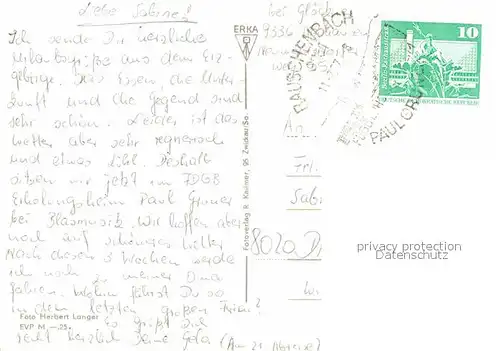 Liebe Sabine!
Ich sende Dir herzliche
Urlaubsgrüße aus dem Erz-
gebirge. Das Essen, die Unter-
kunft und die Gegend sind
sehr schön. Leider ist das
Wetter aber sehr regnerisch
und etwas kühl. Deshalb
sitzen wir jetzt im FDGB
Erholungsheim Paul Gruner
bei Blasmusik. Wir hoffen aber
noch auf schönes Wetter
Nach diesen 3 Wochen werde
ich noch zu meiner Oma
fahren. Wohin fährst Du so
in den letzten großen Ferien?
Es grüßt Dich
recht herzlich Deine
(Am 21. Abreise)
Foto Herbert Langer
EVP M -,25
ERKA
Fotoverlag R. Kallmer, 95 Zwickau/Sa.
bei
9336
RAUSCHENBACH
PAUL GRUNER
10
DEUTSCHE DEMOKRATISCHE REPUBLIK
An
Frl.
Sab
8020 D
privacy protection
#Datenschutz